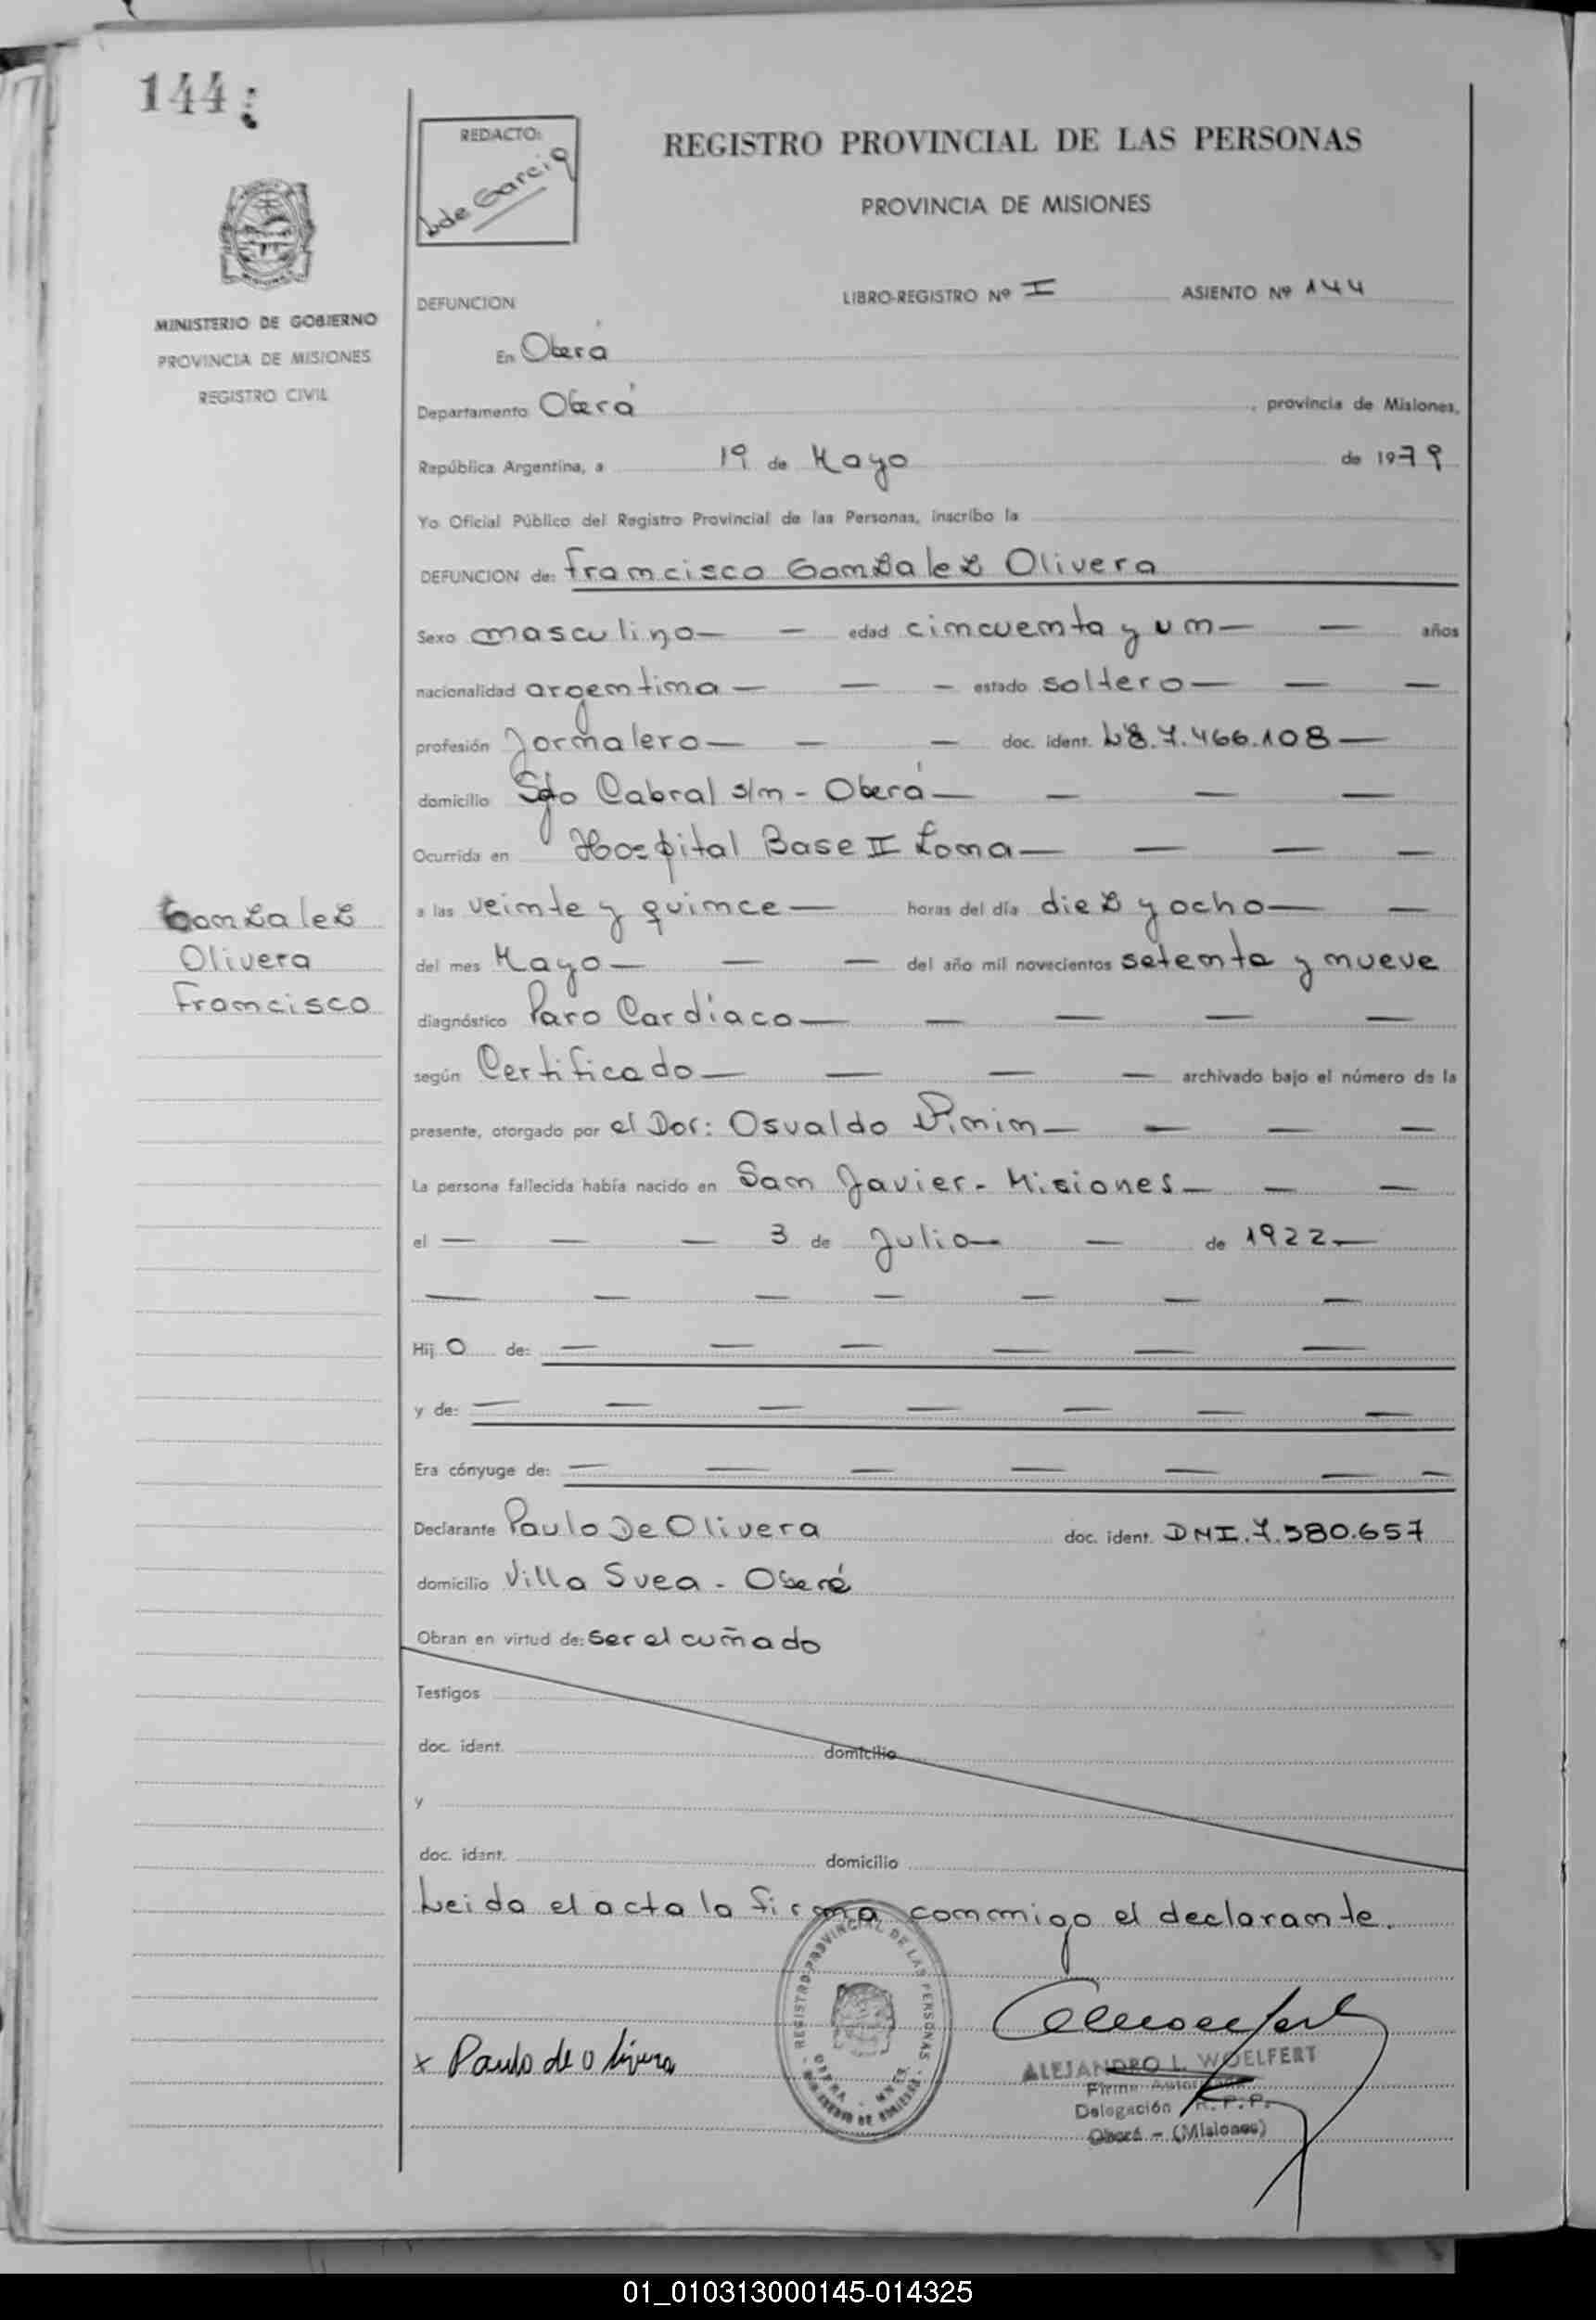 144
REDACTO:
L de Garcia
REGISTRO PROVINCIAL DE LAS PERSONAS
PROVINCIA DE MISIONES
MINISTERIO DE GOBIERNO
PROVINCIA DE MISIONES
REGISTRO CIVIL
DEFUNCION
LIBRO-REGISTRO Nº I ASIENTO Nº 144
En Oberá
Departamento Oberá, provincia de Misiones,
República Argentina, a 19 de Mayo de 1979
Yo Oficial Público del Registro Provincial de las Personas, inscribo la
DEFUNCION de: Francisco Gonzalez Olivera
Sexo masculino — — edad cincuenta y un — — años
nacionalidad argentina — — — estado soltero — — —
profesión Jornalero — — — doc. ident. 7.466.108 —
domicilio Sgto Cabral s/n - Oberá — — — —
Ocurrida en Hospital Base II Loma — — — —
a las veinte y quince — horas del día diez y ocho — —
del mes Mayo — — — del año mil novecientos setenta y nueve
diagnóstico Paro Cardíaco — — — — —
según Certificado — — — — archivado bajo el número de la
presente, otorgado por el Dor: Osvaldo — — — —
La persona fallecida había nacido en San Javier - Misiones — — —
el — — — 3 de Julio — — de 1922 —
— — — — — — —
Hij o de: — — — — — —
y de: — — — — — — —
Era cónyuge de: — — — — — — —
Gonzalez
Olivera
Francisco
Declarante Paulo De Olivera doc. ident. DNI. 7.580.657
domicilio Villa Svea - Oberá
Obran en virtud de: ser el cuñado
Testigos
doc. ident. domicilio
y
doc. ident. domicilio
Leida el acta la firma conmigo el declarante.
REGISTRO PROVINCIAL DE LAS PERSONAS
x Paulo de olivera
ALEJANDRO L. WOELFERT
Firma Autorizada
Delegación R. P. P.
Oberá - (Misiones)
01_010313000145-014325